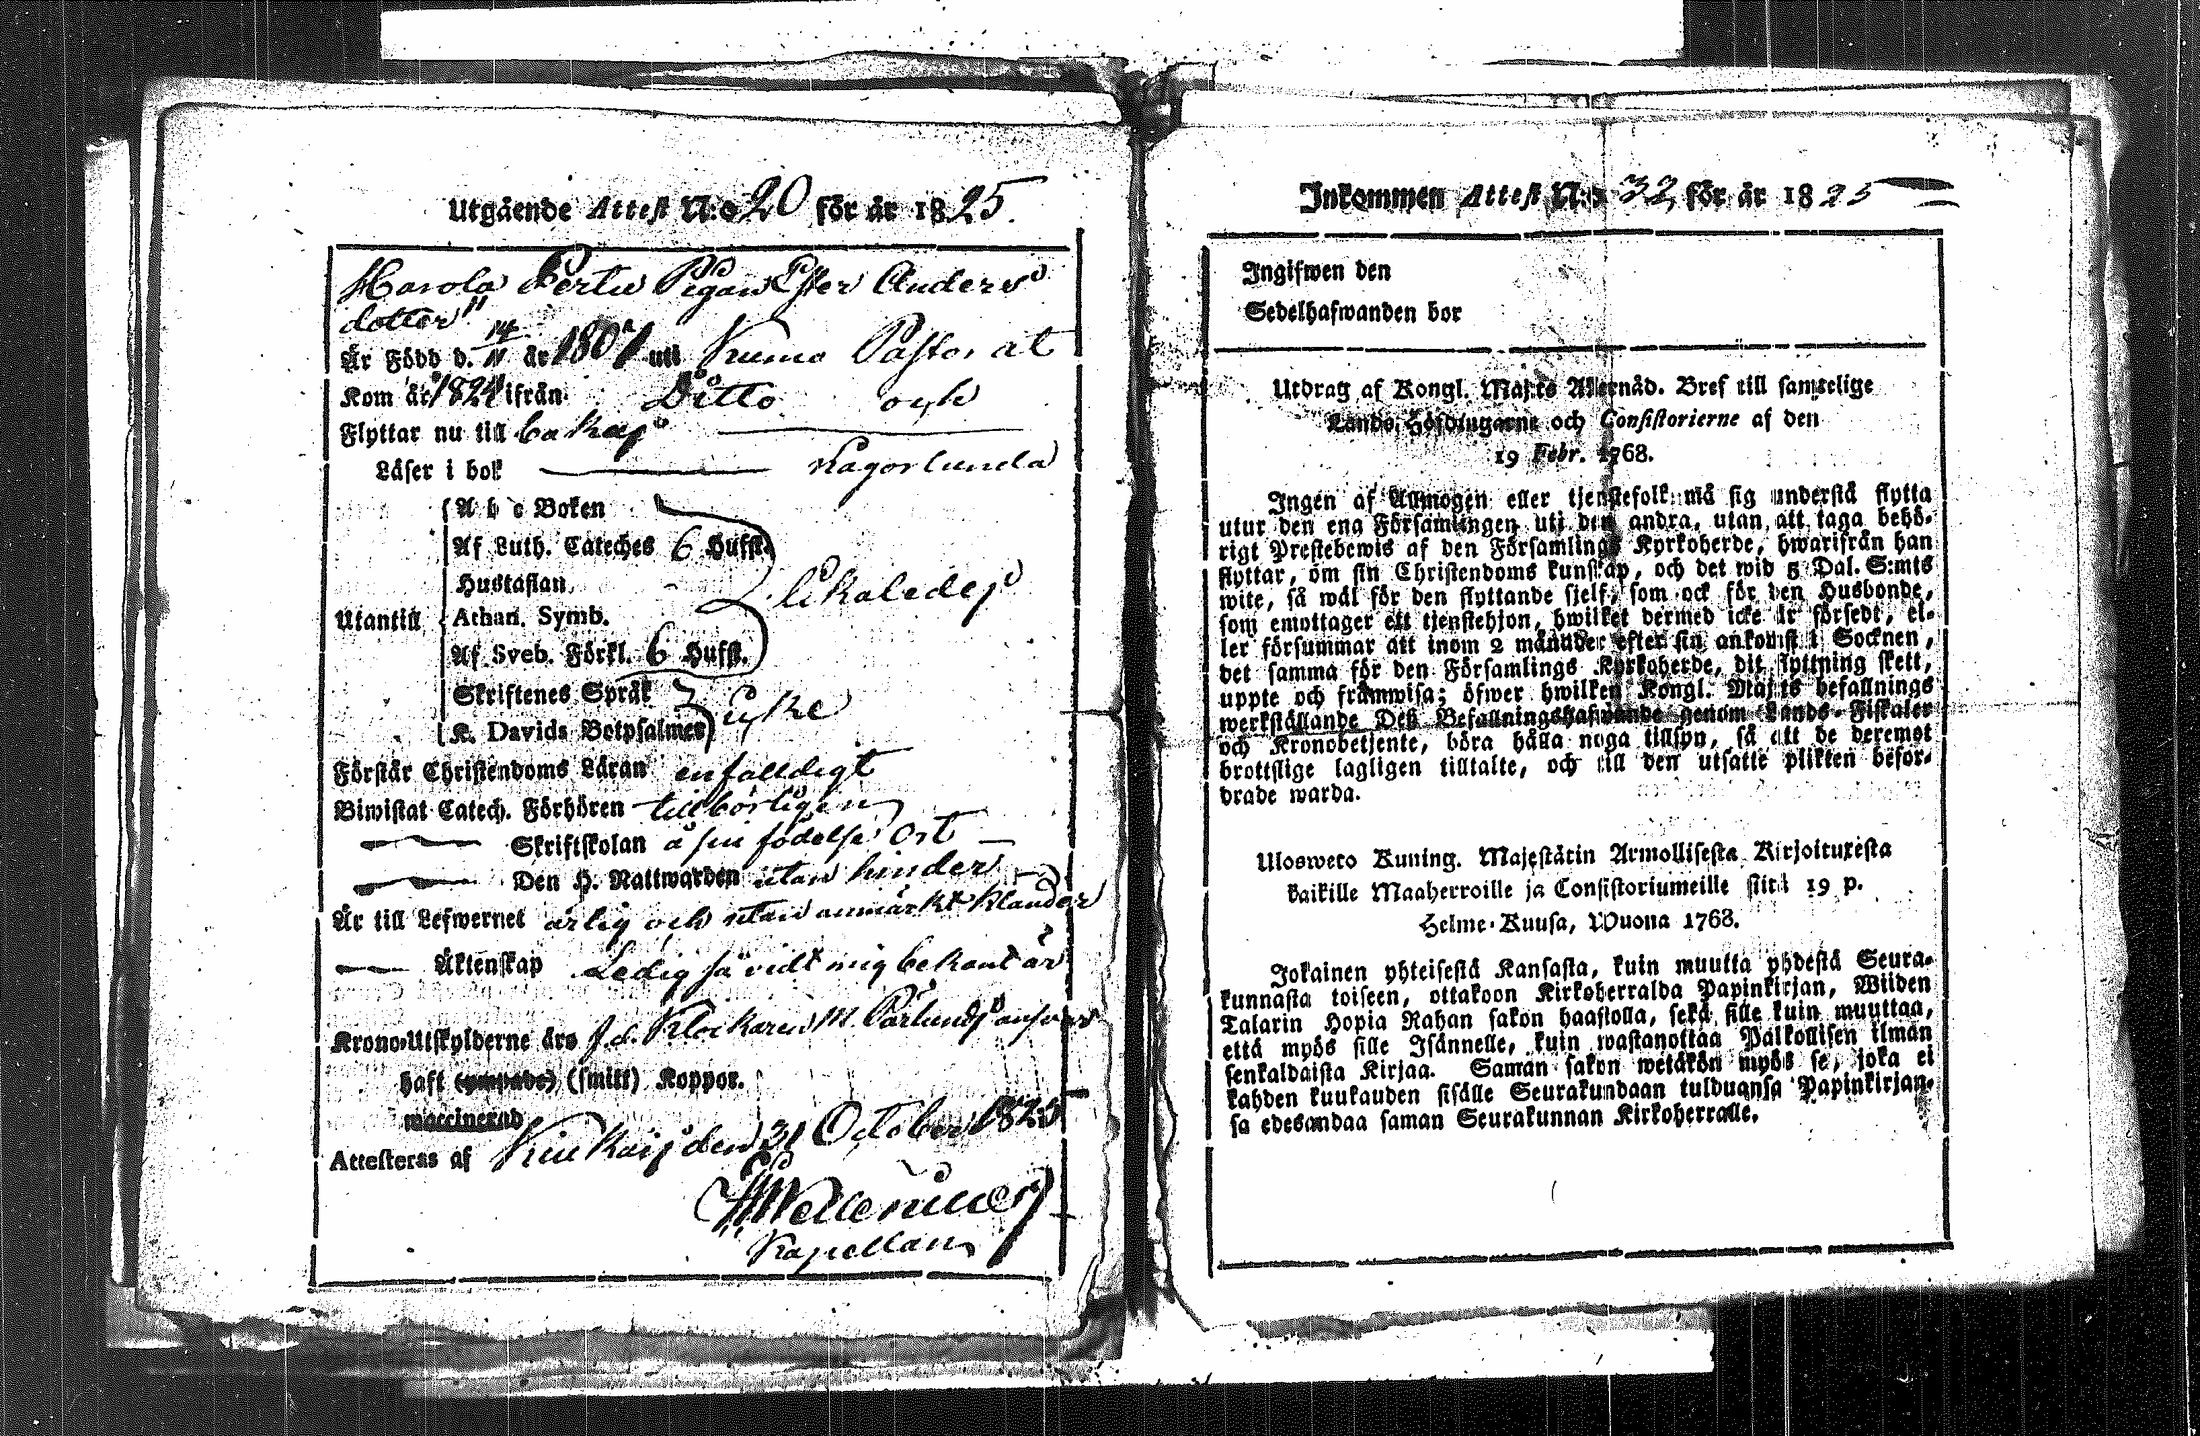 Utgående Attest N:o 20 för år 1825.
Harola Pertu Pigan Ester Anders
dotter
Är Född d. 14/11 år 1807 uti Kumo Pastorat
Kom år 1824 ifrån Ditto och
Flyttar nu till bakas
Läser i bok
A b c Boken
Af Luth. Cateches 6 Hufst.
Hustaflan
likaledes
Utantill Athan. Symb.
Af Sveb. Förkl. 6 Hufst.
Skriftenes Språk
icke
K. Davids Botpsalmer
Förstår Christendoms Läran enfalldigt
Biwistat Catech. Förhören tillbörligen
Skriftskolan å sin födelse Ort
Den H. Nattwarden utan hinder
Är till Lefwernet ärlig och utan anmärkt klander
Äktenskap Ledig så vidt mig bekant är
Krono-Utskylderne äro Klockaren M. Pärlunds answar
haft (ympade) (smitt) Koppor.
waccinerad
Attesteras af den 31 October 1825
Kapellan
Inkommen Attest N:o 32 för år 1825
Ingifwen den
Sedelhafwanden bor
Utdrag af Kongl. Maj:ts Allernåd. Bref till samtelige
Lands Höfdingarne och Consistorierne af den
19 Febr. 1768.
Ingen af Allmogen eller tjenstefolk må sig understå flytta
utur den ena Församlingen uti den andra, utan att taga behö-
rigt Prestebewis af den Församlings Kyrkoherde, hwarifrån han
flyttar, om sin Christendoms kunskap, och det wid 5 Dal. S:mts
wite, så wäl för den flyttande sjelf, som ock för den Husbonde,
som emottager ett tjenstehjon, hwilket dermed icke är försedt, el-
ler försummar att inom 2 månader efter sin ankomst i Socknen,
det samma för den Församlings Kyrkoherde, dit flyttning skett,
uppte och framwisa; öfwer hwilken Kongl. Maj:ts befallnings
werkställande Deß Befallningshafwande genom Lands-Fiskaler
och Kronobetjente, böra hålla noga tillsyn, så att de deremot
brottslige lagligen tilltalte, och till den utsatte plikten befor-
drade warda.
Ulosweto Kuning. Majestätin Armollisesta Kirjoituxesta
kaikille Maaherroille ja Consistoriumeille siitä 19 p.
Helme-Kuusa, Wuona 1768.
Jokainen yhteisestä Kansasta, kuin muutta yhdestä Seura-
kunnasta toiseen, ottakoon Kirkoherralda Papinkirjan, Wiiden
Talarin Hopia Rahan sakon haastolla, sekä sille kuin muuttaa,
että myös sille Isännelle, kuin wastanottaa Palkollisen ilman
senkaldaista Kirjaa. Saman sakon wetäkön myös se, joka ei
kahden kuukauden sisälle Seurakundaan tulduansa Papinkirjan-
sa edesandaa saman Seurakunnan Kirkoherralle.